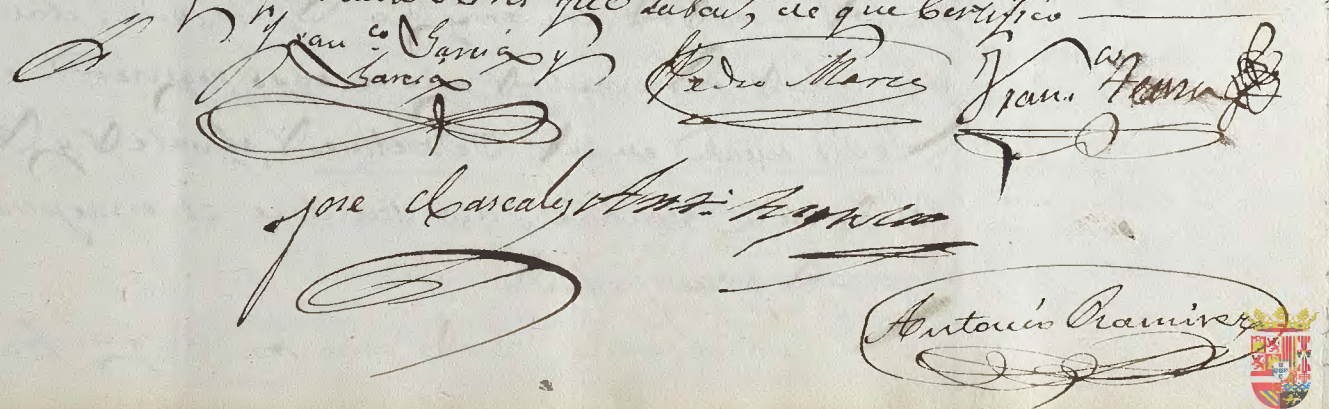 que saben, de que Certifico
Fran.co Garcia y
Garcia
Pedro Marco
Fran.co
Jose Cascales Ant.o
Antonio Ramirez